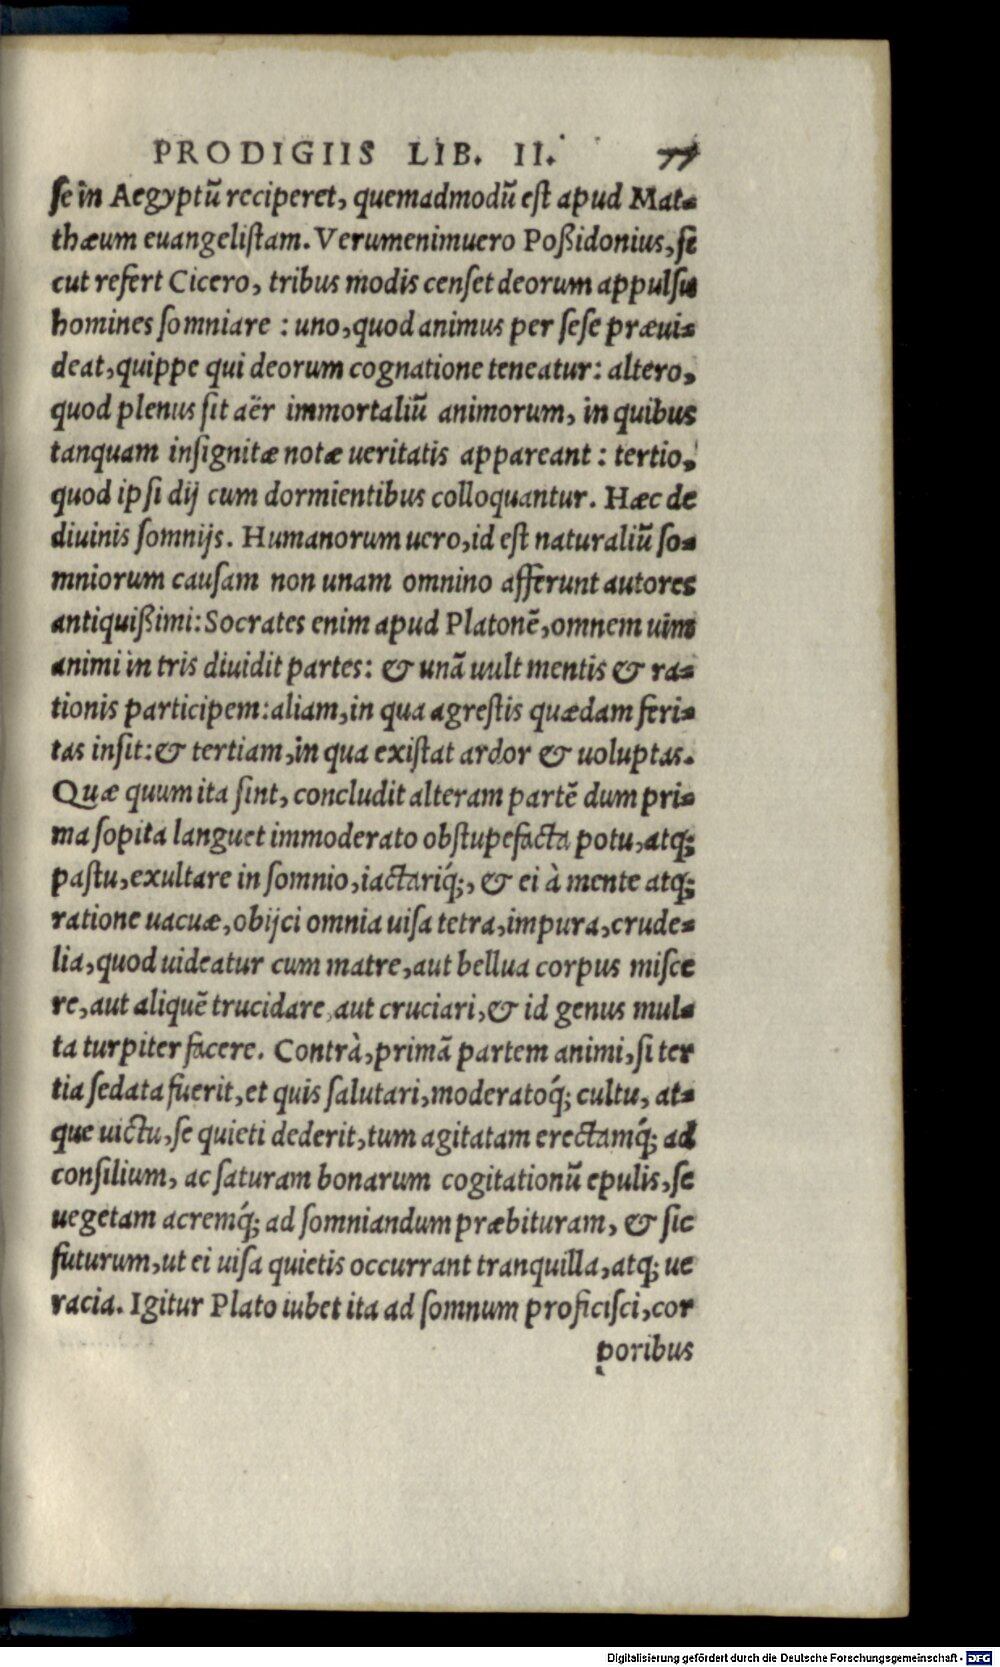 PRODIGIIS LIB. II. 77
se in Aegyptū reciperet, quemadmodū est apud Mat-
thæum euangelistam. Verumenimuero Poßidonius, si
cut refert Cicero, tribus modis censet deorum appulsu
homines somniare : uno, quod animus per sese præui-
deat, quippe qui deorum cognatione teneatur: altero,
quod plenus sit aër immortaliū animorum, in quibus
tanquam insignitæ notæ ueritatis appareant : tertio,
quod ipsi dij cum dormientibus colloquantur. Hæc de
diuinis somnijs. Humanorum uero, id est naturaliū so-
mniorum causam non unam omnino afferunt autores
antiquißimi: Socrates enim apud Platonē, omnem uim
animi in tris diuidit partes: & unā uult mentis & ra-
tionis participem: aliam, in qua agrestis quædam feri-
tas insit: & tertiam, in qua existat ardor & uoluptas.
Quæ quum ita sint, concludit alteram partē dum pri-
ma sopita languet immoderato obstupefacta potu, atq;
pastu, exultare in somnio, iactariq́;, & ei à mente atq;
ratione uacuæ, obijci omnia uisa tetra, impura, crude-
lia, quod uideatur cum matre, aut bellua corpus misce
re, aut aliquē trucidare, aut cruciari, & id genus mul-
ta turpiter facere. Contrà, primā partem animi, si ter
tia sedata fuerit, et quis salutari, moderatoq́; cultu, at-
que uictu, se quieti dederit, tum agitatam erectamq́; ad
consilium, ac saturam bonarum cogitationū epulis, se
uegetam acremq́; ad somniandum præbituram, & sic
futurum, ut ei uisa quietis occurrant tranquilla, atq; ue
racia. Igitur Plato iubet ita ad somnum proficisci, cor
poribus
Digitalisierung gefördert durch die Deutsche Forschungsgemeinschaft - DFG